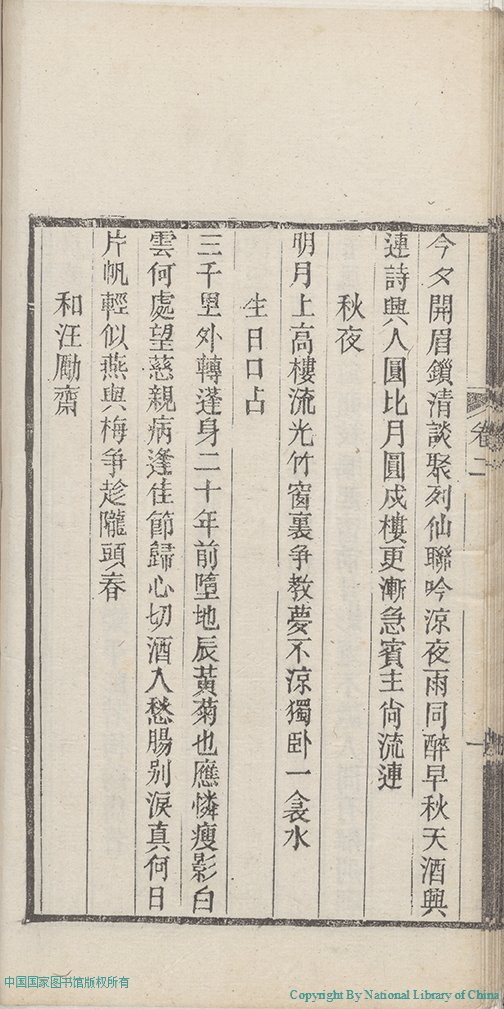 今夕開眉鎖清談聚列仙聯吟涼夜雨同醉早秋天酒興
連詩興人圓比月圓戍樓更漸急賓主尙流連
秋夜
明月上高樓流光竹窗裏爭教夢不涼獨卧一衾水
生日口占
三千里外轉蓬身二十年前墮地辰黃菊也應憐瘦影白
雲何處望慈親病逢佳節歸心切酒入愁腸别淚真何日
片帆輕似燕與梅爭趁隴頭春
和汪勵齋
卷二
一
中国国家图书馆版权所有
Copyright By National Library of China